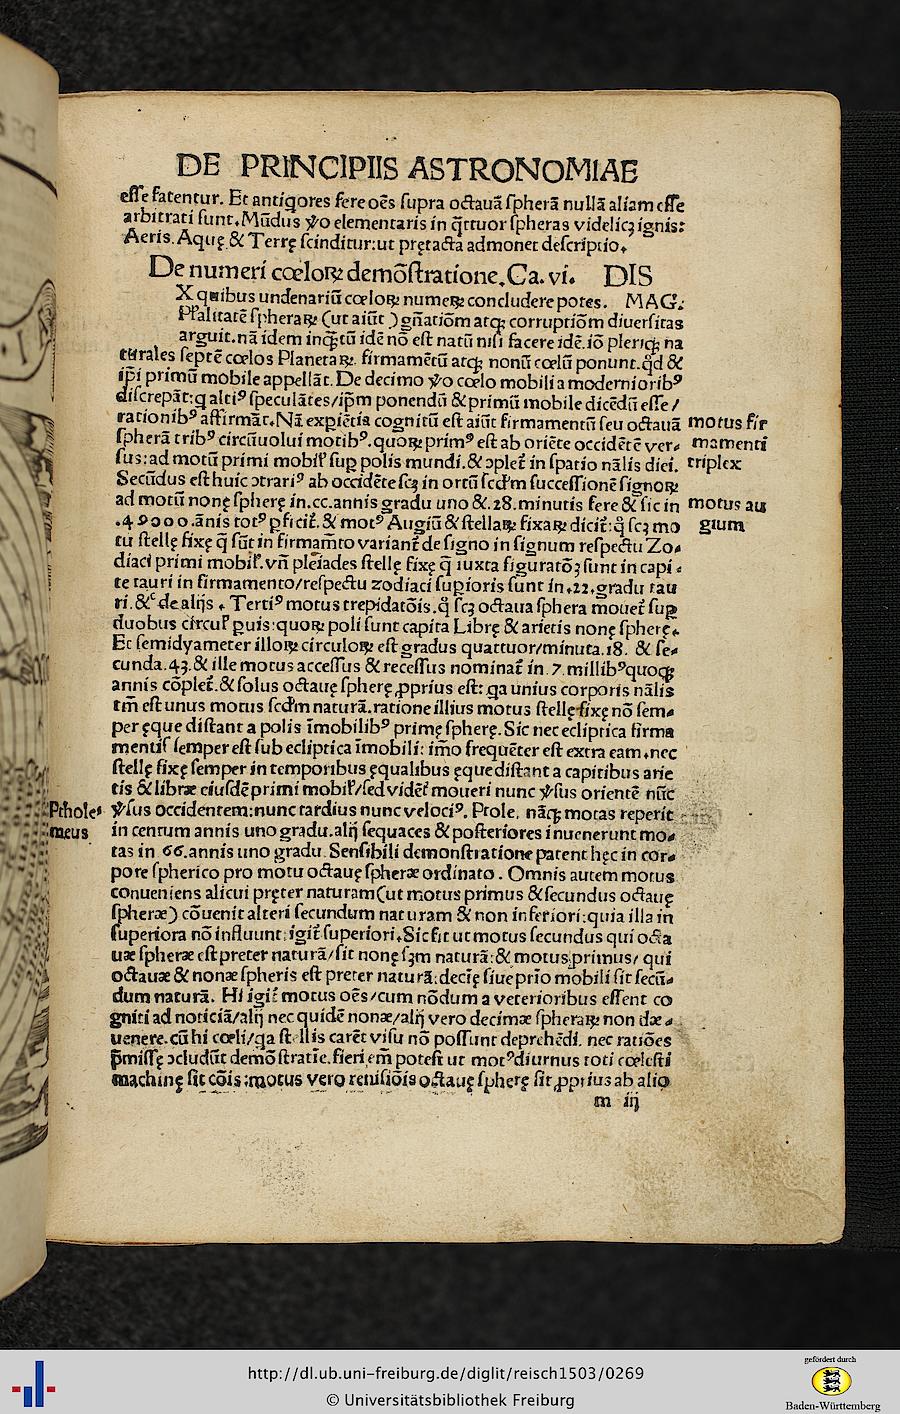 DE PRINCIPIIS ASTRONOMIAE
esse fatentur. Et antiqores fere oēs supra octauā spherā nullā aliam esse
arbitrati sunt. Mūdus ꝟo elementaris in q̄ttuor spheras videlicꝫ ignis:
Aeris. Aquę & Terrę scinditur: ut prętacta admonet descriptio.
De numeri cœloꝝ demōstratione. Ca. vi. DIS
X quibus undenariū cœloꝝ numeꝝ concludere potes. MAG:
Pl̄alitatē spheraꝝ (ut aiūt) gñatiōm atqꝫ corruptiōm diuersitas
arguit. nā idem inqꝫtū idē nō est natū nisi facere idē. iō pleriqꝫ na
turales septē cœlos Planetaꝝ. firmamētū atqꝫ nonū cœlū ponunt. qđ &
ip̄i primū mobile appellāt. De decimo ꝟo cœlo mobili a moderniorib⁹
discrepāt: q alti⁹ speculātes/ip̄m ponendū & primū mobile dicēdū esse/
rationib⁹ affirmāt. Nā exꝑiētia cognitū est aiūt firmamentū seu octauā
motus fir
spherā trib⁹ circūuolui motib⁹. quoꝝ prim⁹ est ab oriēte occidētē ver-
mamenti
sus: ad motū primi mobil̄ suꝑ polis mundi. & ɔplet̄ in spatio nālis diei.
triplex
Secūdus est huic ɔtrari⁹ ab occidēte scꝫ in ortū scd̄m successionē signoꝝ
ad motū nonę spherę in .cc. annis gradu uno & .28. minutis fere & sic in
motus au
.49000. ānis tot⁹ ꝑficit̄. & mot⁹ Augiū & stellaꝝ fixaꝝ dicit̄: q̄ scꝫ mo
gium
tu stellę fixę q̄ sūt in firmam̄to variant̄ de signo in signum respectu Zo-
diaci primi mobil̄. vn̄ pleiades stellę fixę q̄ iuxta figuratōꝫ sunt in capi-
te tauri in firmamento/respectu zodiaci suꝑioris sunt in .22. gradu tau
ri. &c̄ de alijs. Terti⁹ motus trepidatōis. q̄ scꝫ octaua sphera mouet̄ suꝑ
duobus circul̄ ꝑuis: quoꝝ poli sunt capita Librę & arietis nonę spherę.
Et semidyameter illoꝝ circuloꝝ est gradus quattuor/minuta .18. & se-
cunda .43. & ille motus accessus & recessus nominat̄ in .7. millib⁹ quoqꝫ
annis cōplet̄. & solus octauę spherę ꝓprius est: qa unius corporis nālis
tm̄ est unus motus scd̄m naturā. ratione illius motus stellę fixę nō sem-
per ęque distant a polis īmobilib⁹ primę spherę. Sic nec ecliptica firma
mentis semper est sub ecliptica īmobili: im̄o frequēter est extra eam. nec
stellę fixę semper in temporibus ęqualibus ęque distant a capitibus arie
tis & libræ eiusdē primi mobil̄/sed vidēt̄ moueri nunc ꝟsus orientē nūc
Ptholę-
ꝟsus occidentem: nunc tardius nunc veloci⁹. Ptole. nāqꝫ motas reperit
meus
in centum annis uno gradu. alij sequaces & posteriores inuenerunt mo-
tas in .66. annis uno gradu. Sensibili demonstratione patent hęc in cor-
pore spherico pro motu octauę spheræ ordinato. Omnis autem motus
conueniens alicui pręter naturam (ut motus primus & secundus octauę
spheræ) cōuenit alteri secundum naturam & non inferiori: quia illa in
superiora nō influunt: igit̄ superiori. Sic fit ut motus secundus qui octa
uæ spheræ est preter naturā/sit nonę sꝫm naturā: & motus primus/ qui
octauæ & nonæ spheris est preter naturā: decię siue prīo mobili sit secū-
dum naturā. Hi igit̄ motus oēs/cum nōdum a veterioribus essent co
gniti ad noticiā/alij nec quidē nonæ/alij vero decimæ spheraꝝ non dæ-
uenere. cū hi cœli/qa stellis carēt visu nō possunt deprehēdi. nec ratiōes
p̄missę ɔcludūt demōstratiē. fieri em̄ potest ut mot⁹ diurnus toti cœlesti
machinę sit cōis: motus vero reuisiōis octauę spherę sit ꝓprius ab alio
m iij
http://dl.ub.uni-freiburg.de/diglit/reisch1503/0269
© Universitätsbibliothek Freiburg
gefördert durch
Baden-Württemberg